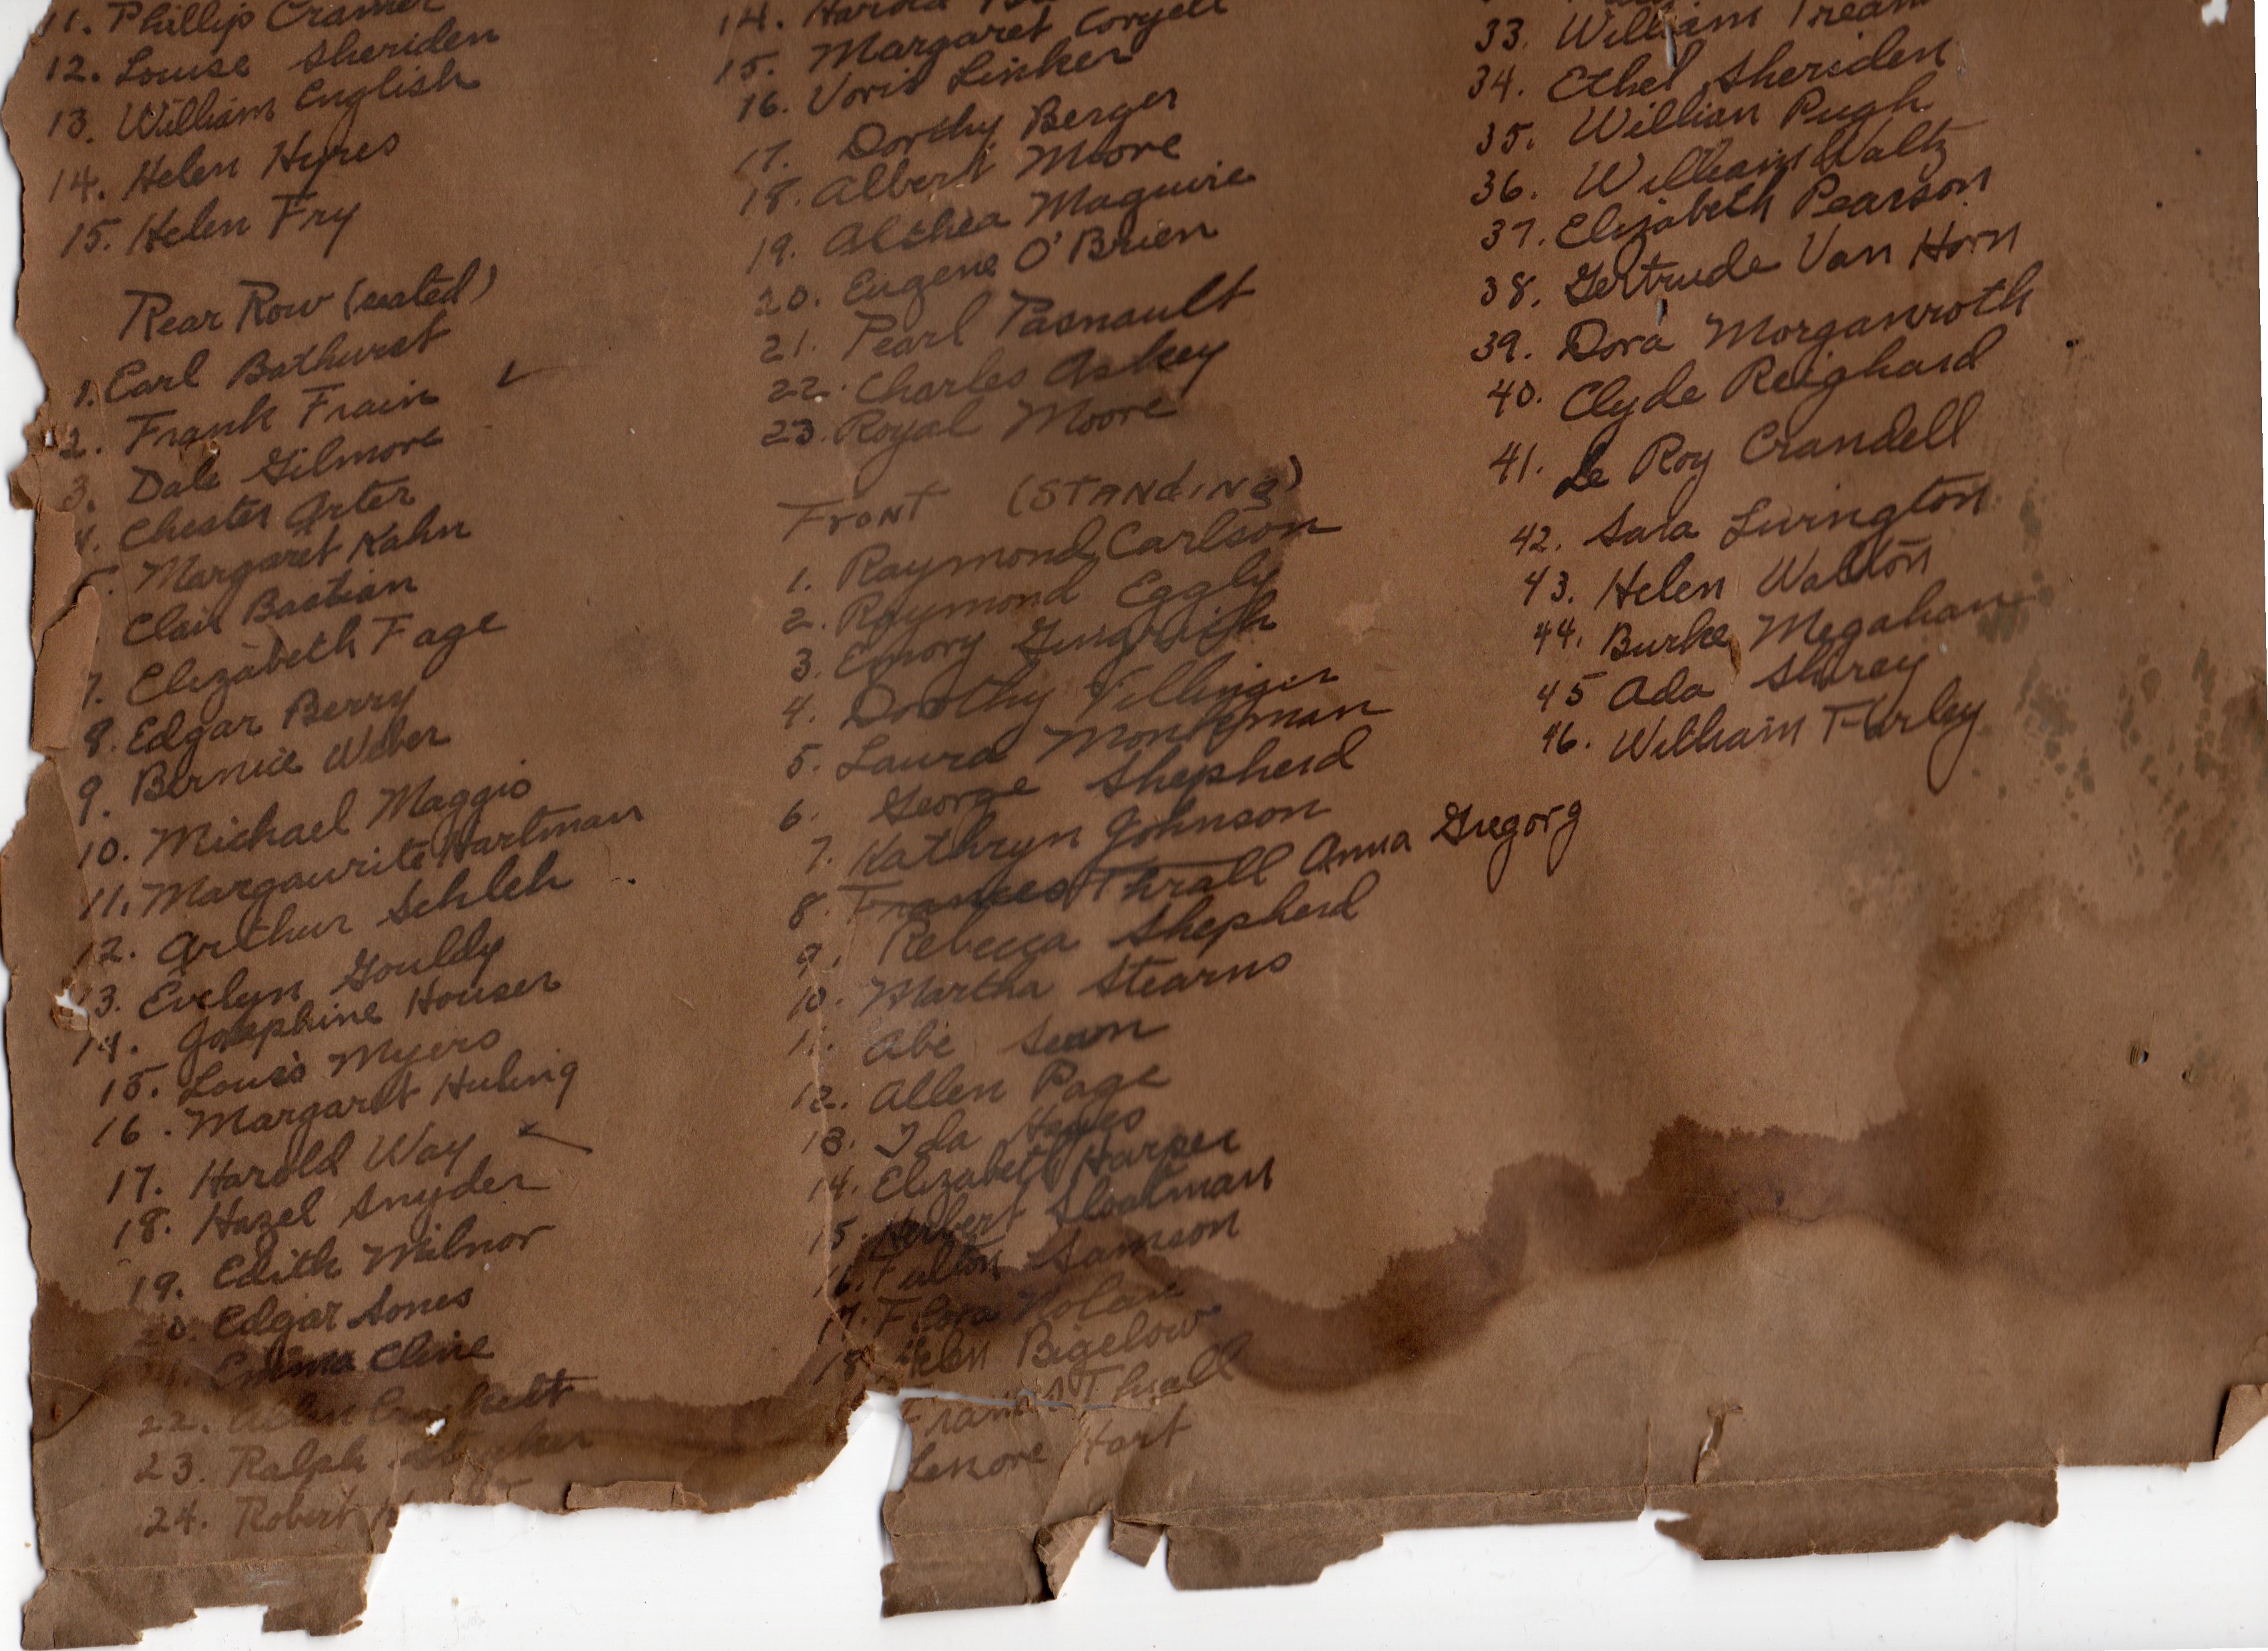 11. Phillip Cramer
12. Louise Sheriden
13. William English
14. Helen Hyres
15. Helen Fry
Rear Row (seated)
1. Carl Bathurst
2. Frank Frain
3. Dale Gilmore
4. Chester Arter
5. Margaret Kahn
Clair Bastian
7. Elizabeth Fage
8. Edgar Berry
9. Bernice Weber
10. Michael Maggio
11. Margaurite Hartman
12. Arthur Schleh
13. Evelyn Gouldy
14. Josephine Houser
15. Louis Myers
16. Margaret Huling
17. Harold Way
18. Hazel Snyder
19. Edith Milnor
20. Edgar Sones
Emma Cline
22. Allen
23. Ralph
24. Robert
14. Harold
15. Margaret Coryell
16. Voris Linker
17. Dorthy Berger
18. Albert Moore
19. Althea Maguire
20. Eugene O'Brien
21. Pearl Pasnault
22. Charles Askey
23. Royal Moore
FRONT (STANDING)
1. Raymond Carlson
2. Raymond Eggly
3. Emory Gingrigh
4. Dorothy Villinger
5. Laura
6. George Shepherd
7. Kathryn Johnson
8. Frances Thrall Anna Gregorg
9. Rebecca Shepherd
10. Martha Stearns
11. Abe
12. Allen Page
13. Ida Hayes
14. Elizabeth Harper
15. Herbert Sloatman
16. Fulton Samson
17. Flora Nolan
18. Helen Bigelow
Frances Thrall
Lenore Hart
33. William
34. Ethel Sheriden
35. Willian Pugh
36. William Waltz
37. Elizabeth Pearson
38. Gertrude Van Horn
39. Dora Morganroth
40. Clyde Reighard
41. Le Roy Crandell
42. Sara Livington
43. Helen Walton
44. Burke Megahan
45 Ada Shirey
46. William Furley